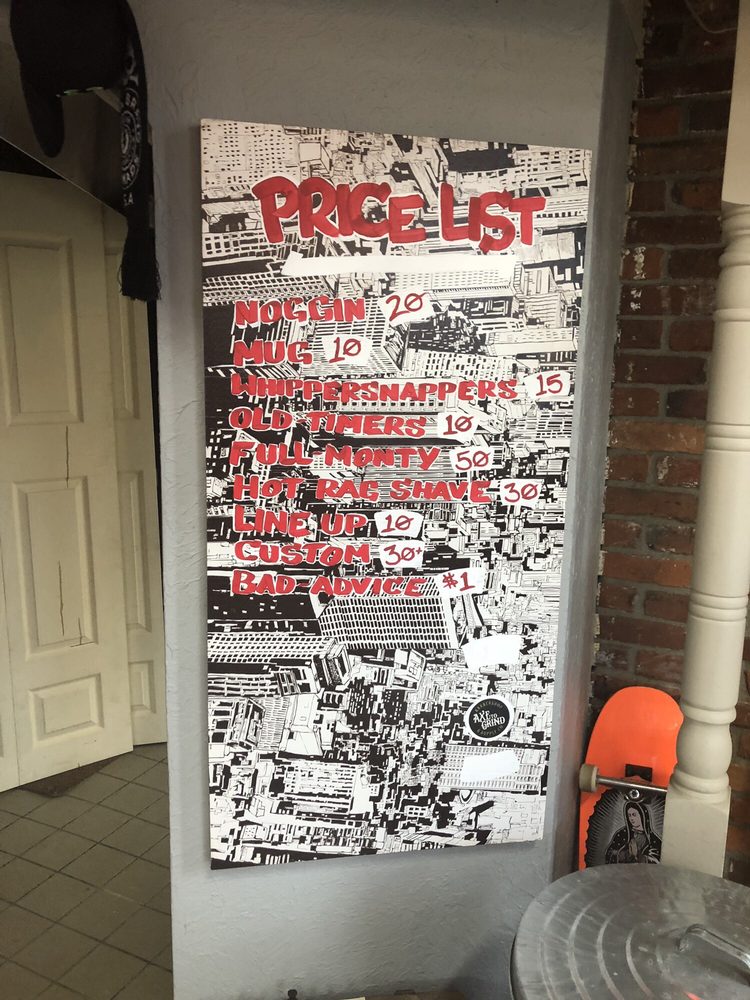 PRICE LIST
NOGGIN 20
MUG 10
WHIPPERSNAPPERS 15
OLD TIMERS 10
FULL-MONTY 50
HOT RAG SHAVE 30
LINE UP 10
CUSTOM 30+
BAD-ADVICE $1
AXE
GRIND